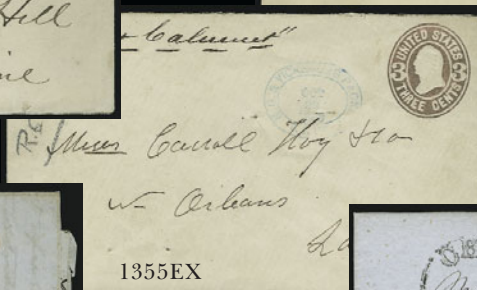 Hill
"Calumet"
UNITED STATES
3 3
THREE CENTS
Messrs Carroll Hoy & Co
N Orleans
La
1355EX